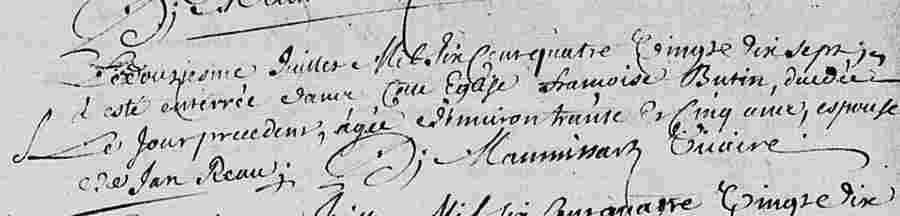 Le dousiesme Juillet Mil six cent quatre Vingts dix sept,
a esté enterrée dans cette Eglise françoise Butin, decedée
Le Jour precedent, agée d'environ trante & cinq ans, espouse
de Jan Reau;
Vicaire
Mil six cent quatre Vingts dix